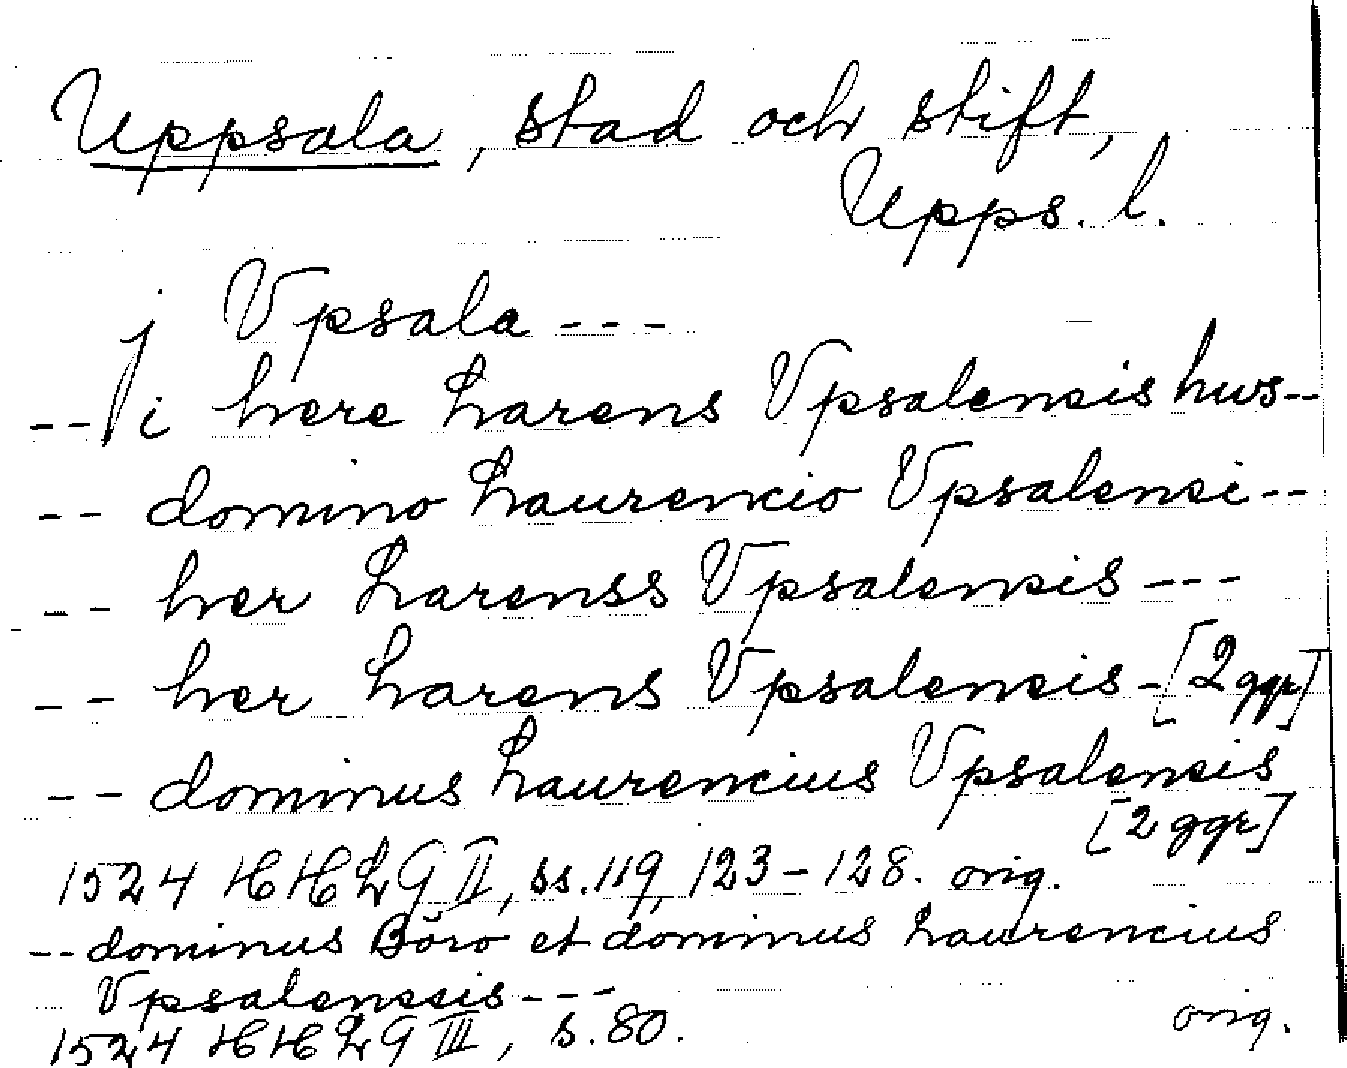 Uppsala, stad och stift,
Upps. l.
j Vpsala ---
-- i here Larens Vpsalensis hws--
-- domino Laurencio Vpsalensi--
-- her Larenss Vpsalensis ---
-- her Larens Vpsalensis - [2 ggr]
-- dominus Laurencius Vpsalensis
[2 ggr]
1524 HHLG II, ss. 119, 123-128. orig.
-- dominus Böro et dominus Laurencius
Vpsalensis ---
1524 HHLG III, s. 80. orig.